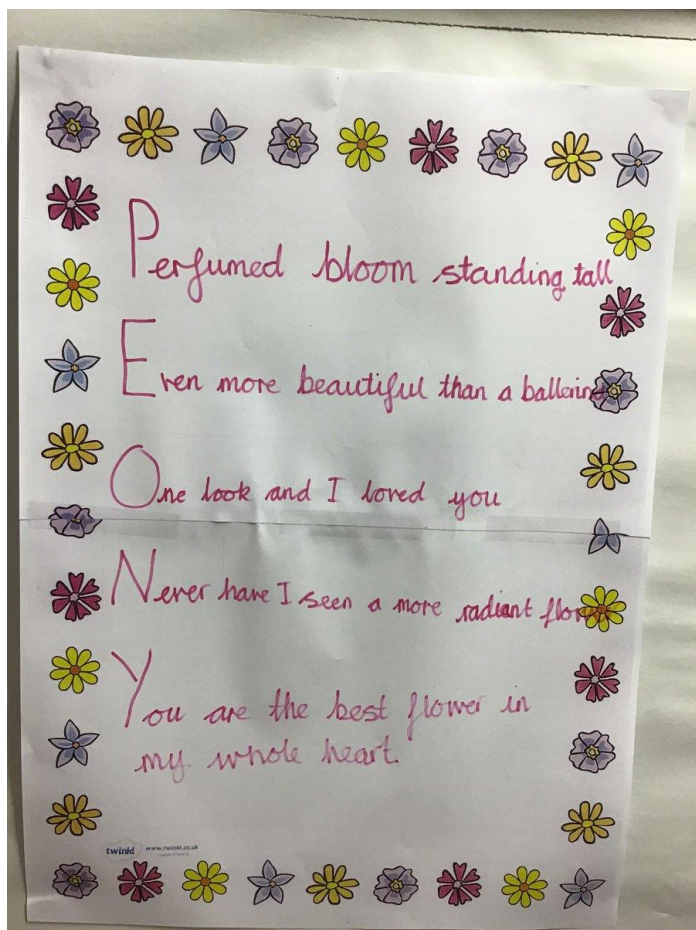 Perfumed bloom standing tall
Even more beautiful than a ballerina
One look and I loved you
Never have I seen a more radiant flower
You are the best flower in
my whole heart.
twinkl www.twinkl.co.uk